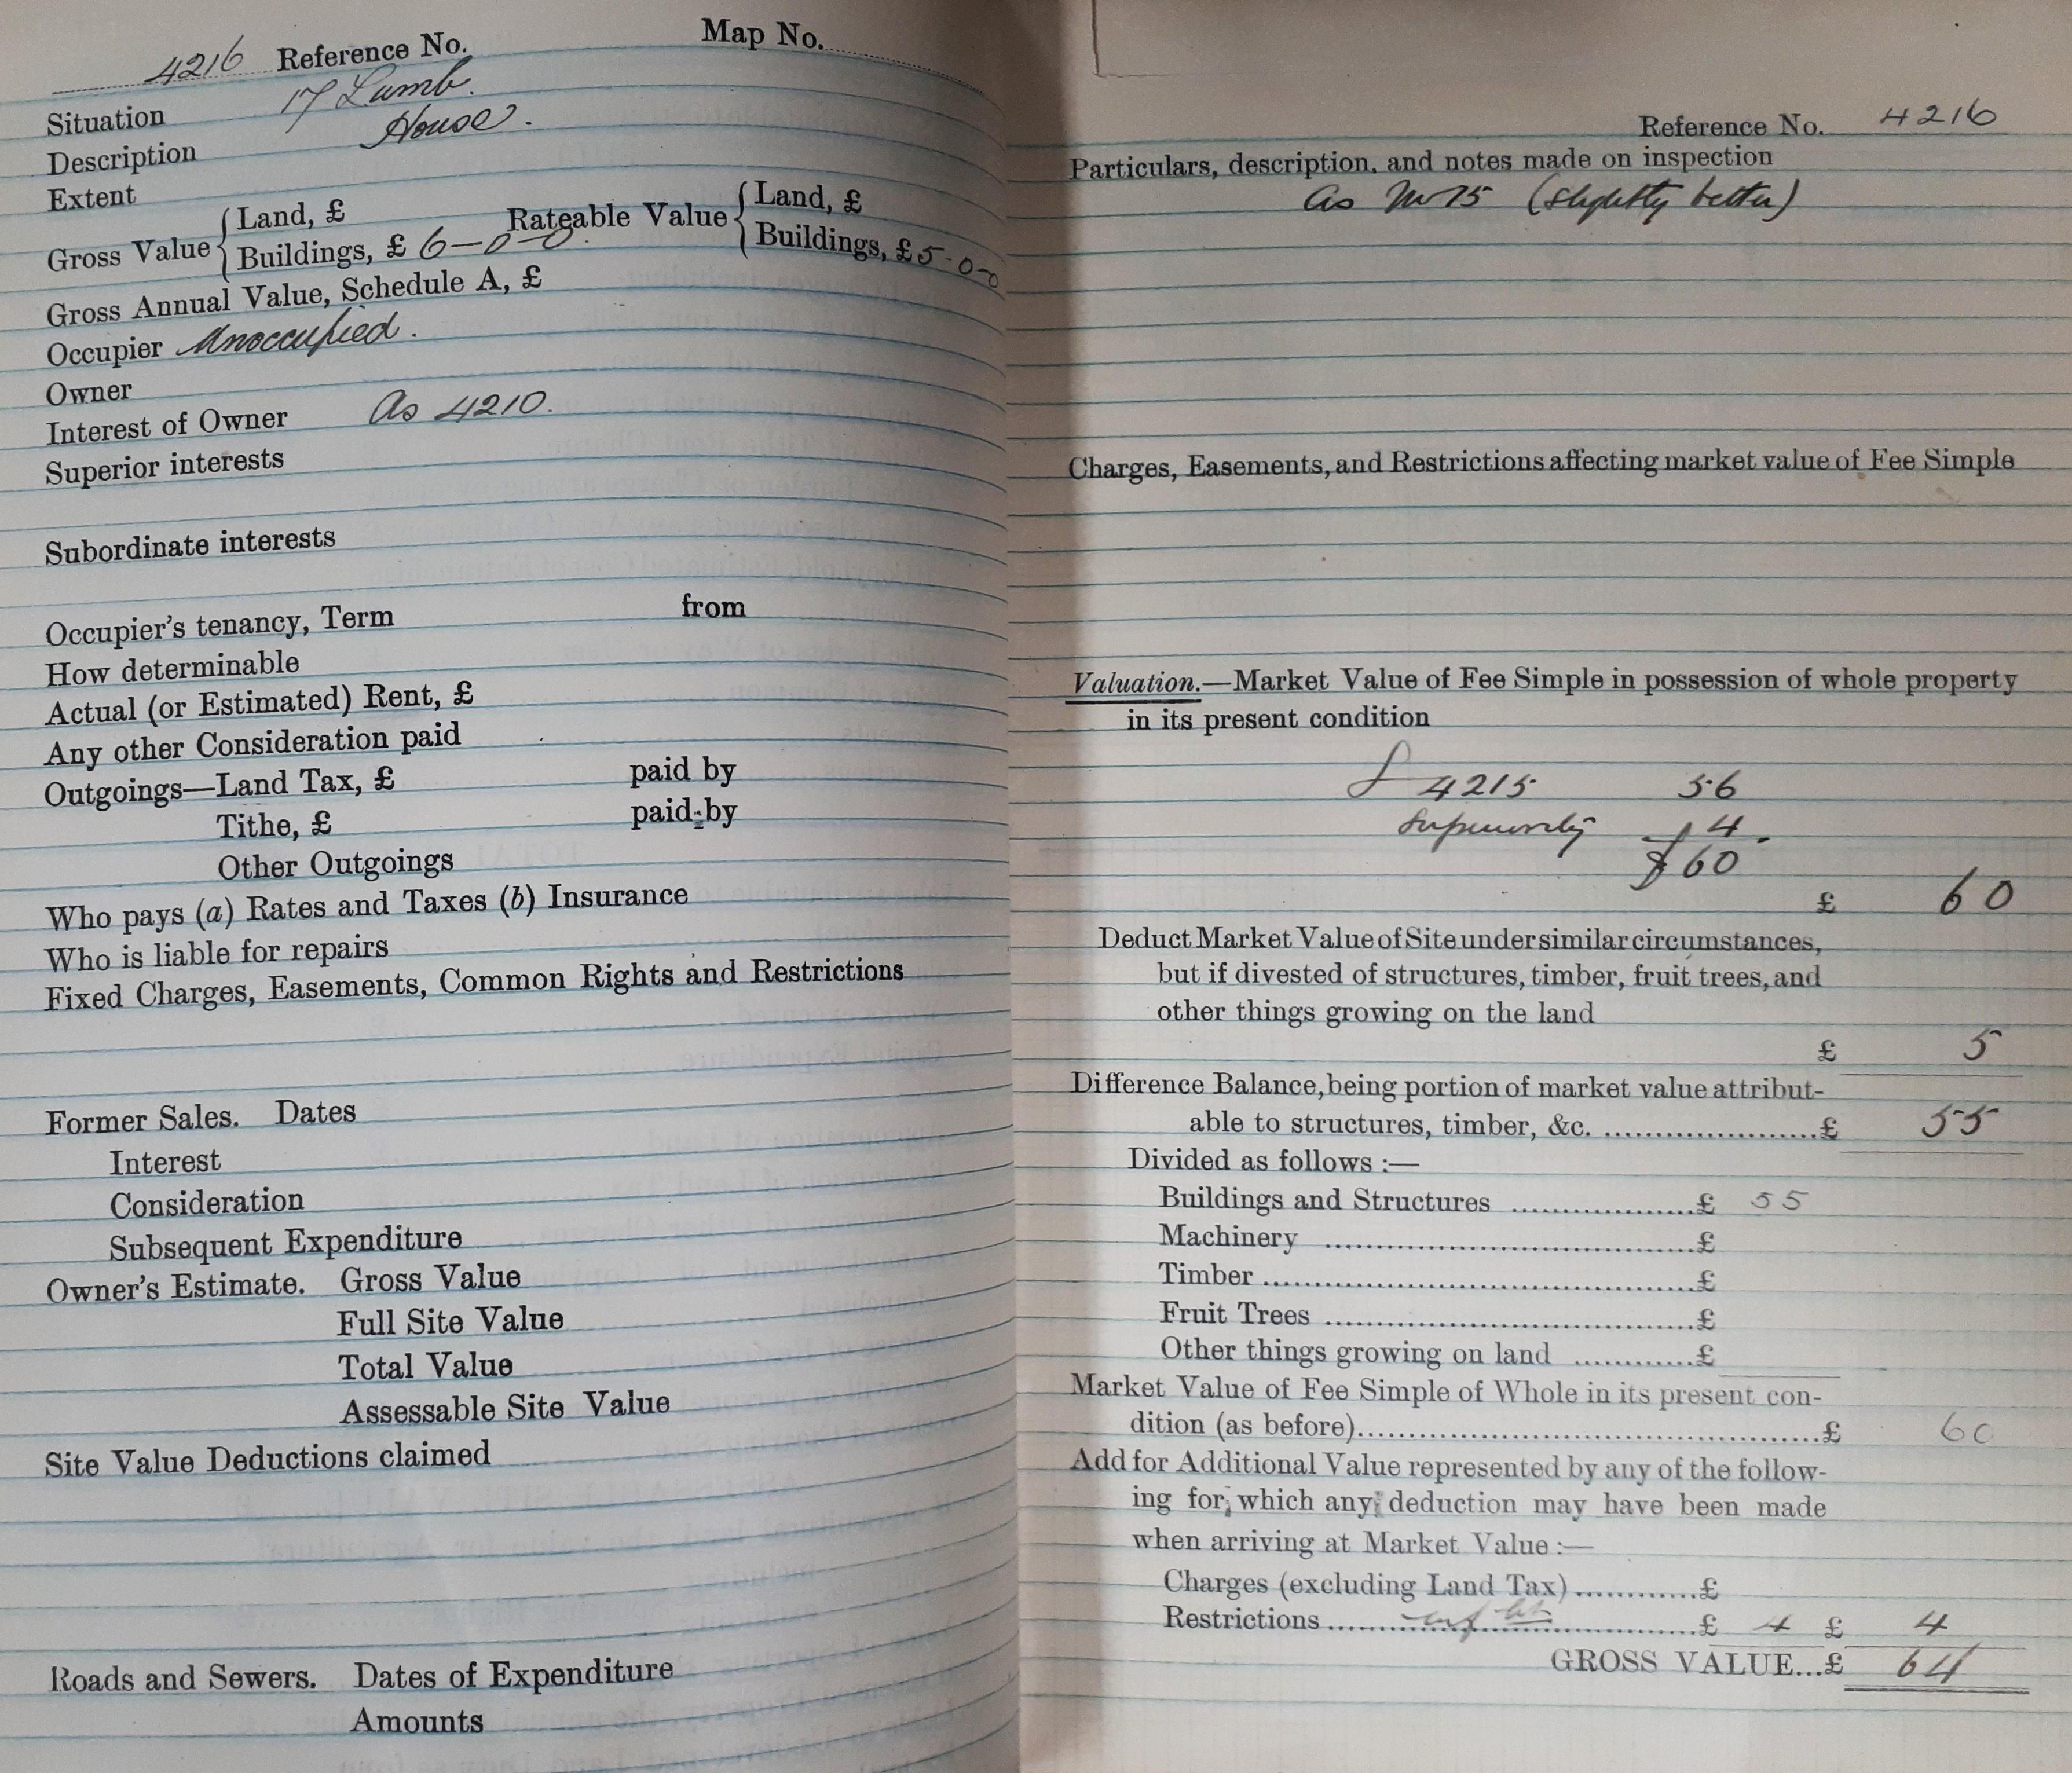 4216 Reference No. Map No.
Situation 17 Lumb.
Description House.
Extent
Gross Value { Land, £ Rateable Value { Land, £
Buildings, £ 6-0-0. Buildings, £ 5-0-0
Gross Annual Value, Schedule A, £
Occupier Unoccupied.
Owner
Interest of Owner As 4210.
Superior interests
Subordinate interests
Occupier's tenancy, Term from
How determinable
Actual (or Estimated) Rent, £
Any other Consideration paid
Outgoings—Land Tax, £ paid by
Tithe, £ paid by
Other Outgoings
Who pays (a) Rates and Taxes (b) Insurance
Who is liable for repairs
Fixed Charges, Easements, Common Rights and Restrictions
Former Sales. Dates
Interest
Consideration
Subsequent Expenditure
Owner's Estimate. Gross Value
Full Site Value
Total Value
Assessable Site Value
Site Value Deductions claimed
Roads and Sewers. Dates of Expenditure
Amounts
Reference No. 4216
Particulars, description, and notes made on inspection
as No 15 (slightly better)
Charges, Easements, and Restrictions affecting market value of Fee Simple
Valuation.—Market Value of Fee Simple in possession of whole property
in its present condition
4215 56
Superiority 4.
£ 60
£ 60
Deduct Market Value of Site under similar circumstances,
but if divested of structures, timber, fruit trees, and
other things growing on the land
£ 5
Difference Balance, being portion of market value attribut-
able to structures, timber, &c. ........ £ 55
Divided as follows :—
Buildings and Structures ........ £ 55
Machinery ........ £
Timber ........ £
Fruit Trees ........ £
Other things growing on land ........ £
Market Value of Fee Simple of Whole in its present con-
dition (as before)........ £ 60
Add for Additional Value represented by any of the follow-
ing for which any deduction may have been made
when arriving at Market Value :—
Charges (excluding Land Tax)........ £
Restrictions ........ £ 4 £ 4
GROSS VALUE...£ 64